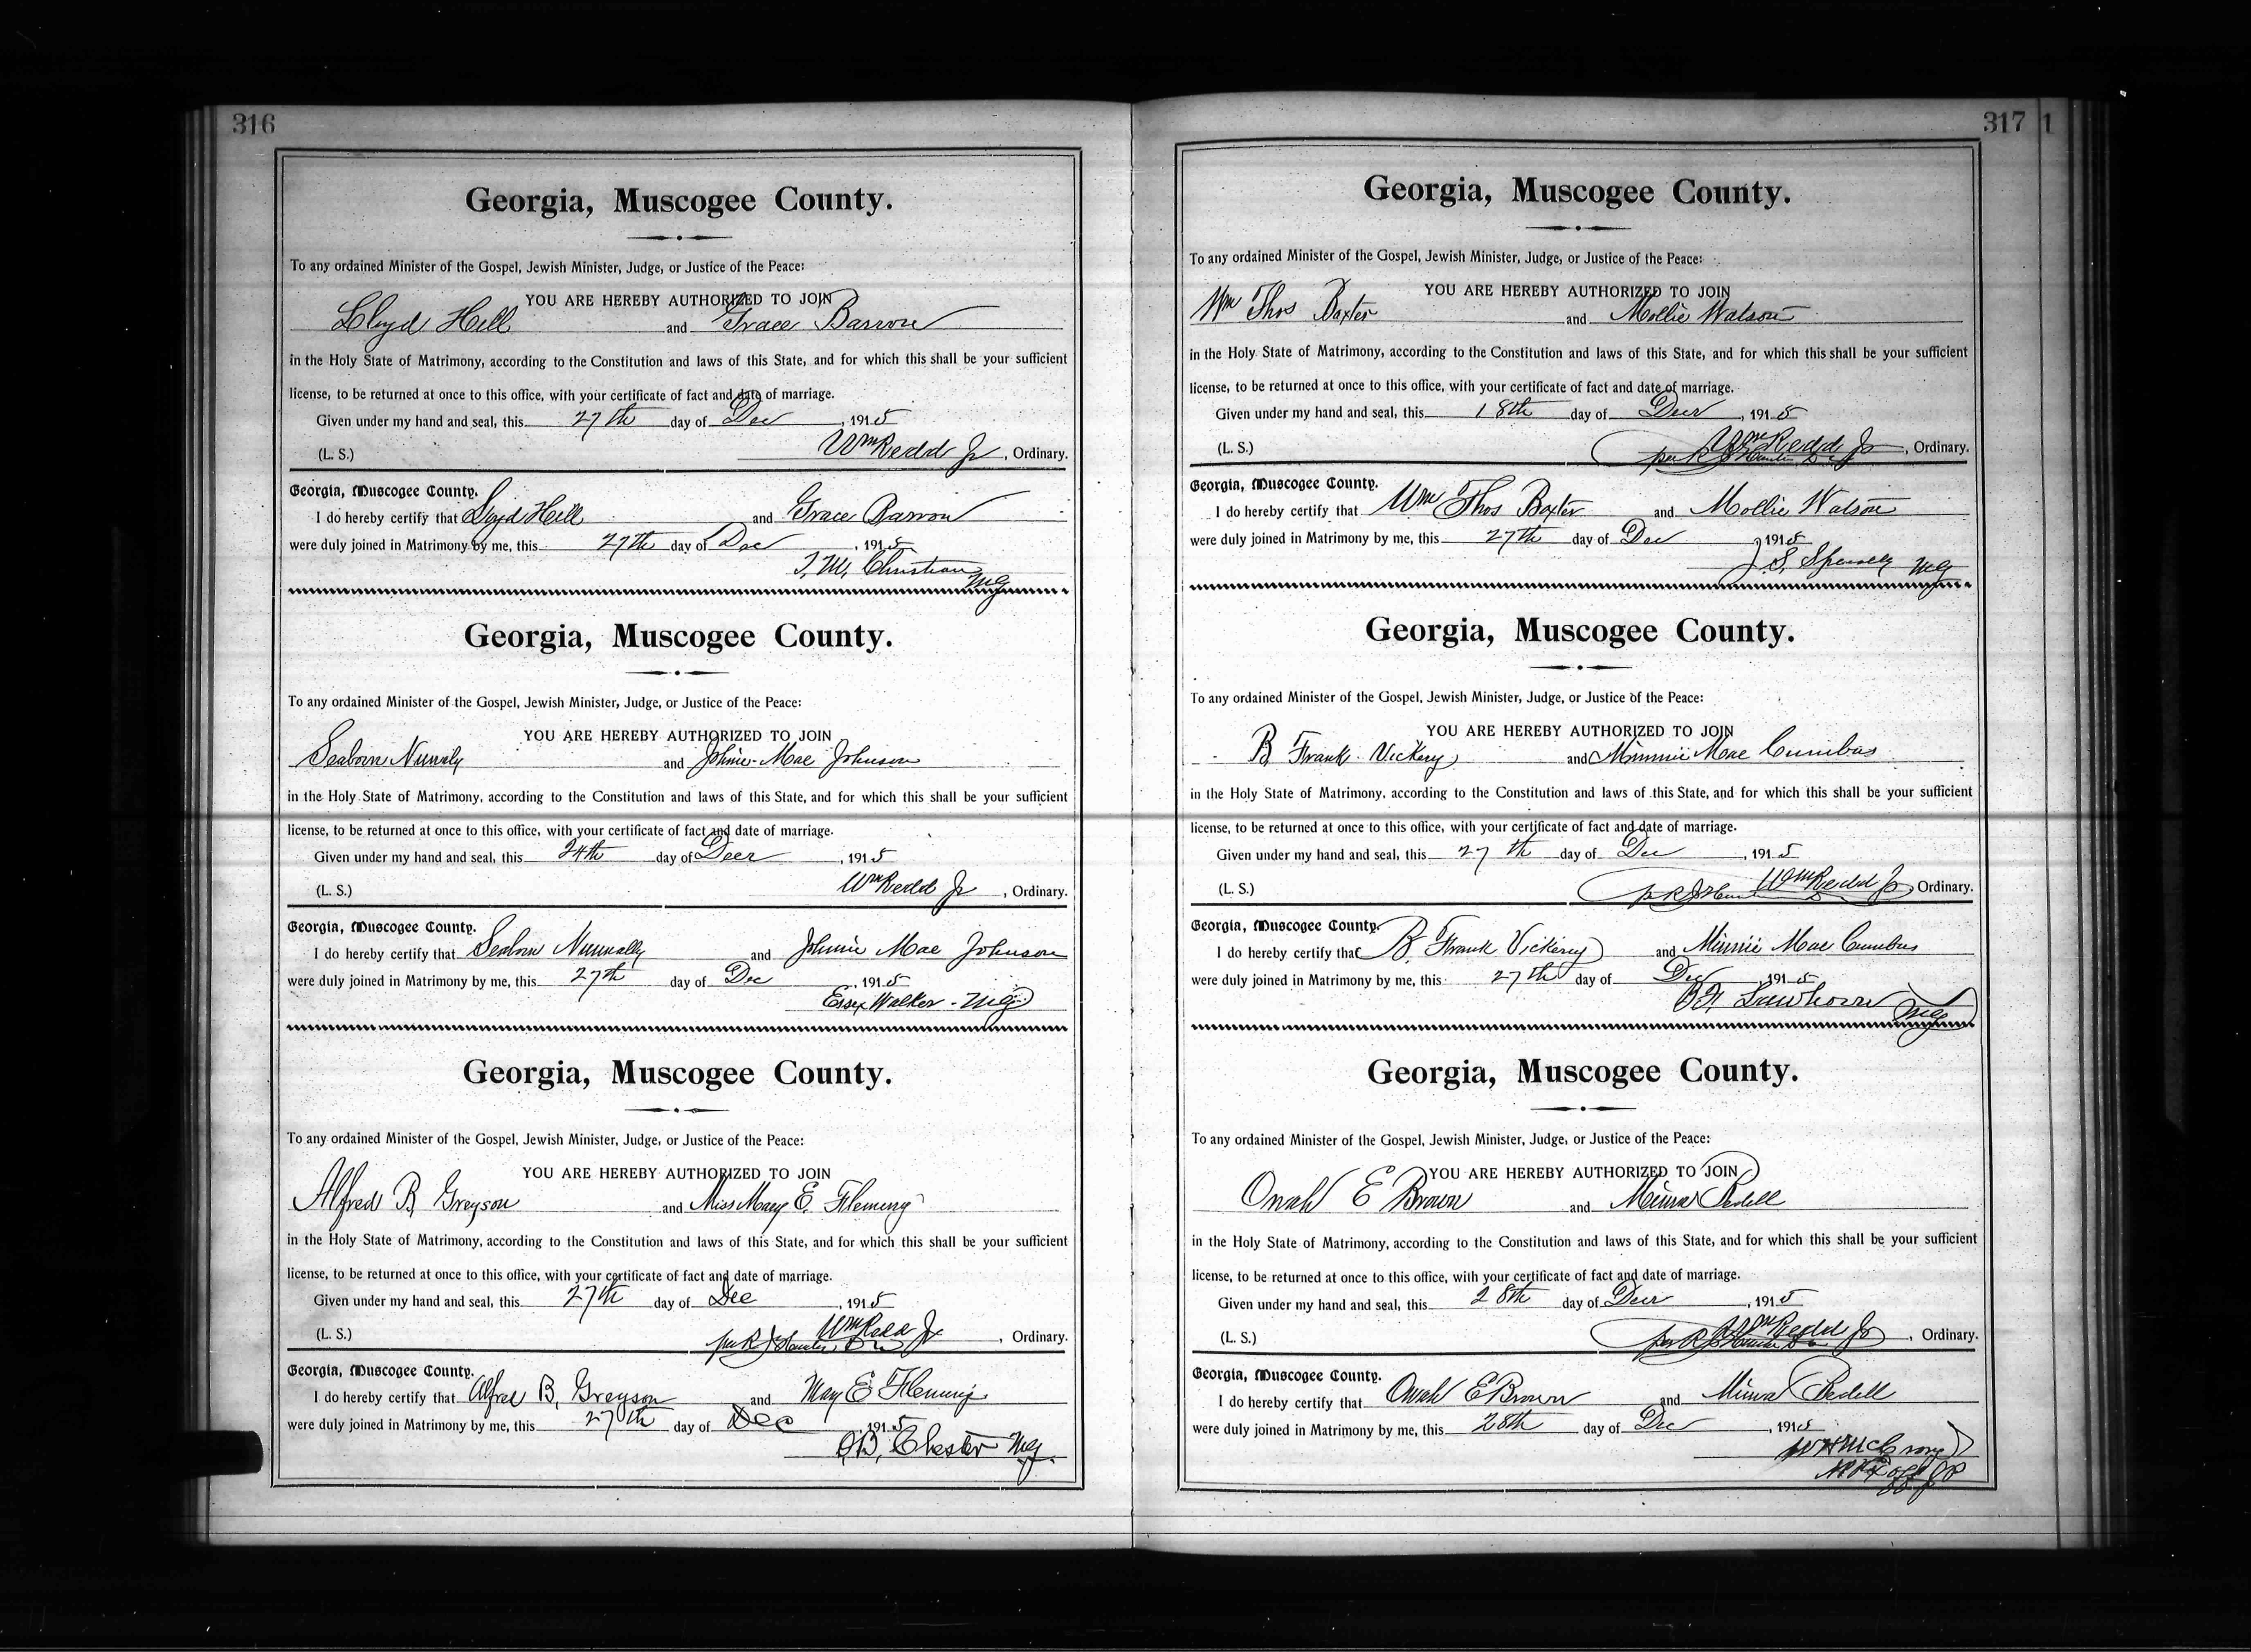 316
Georgia, Muscogee County.
To any ordained Minister of the Gospel, Jewish Minister, Judge, or Justice of the Peace:
YOU ARE HEREBY AUTHORIZED TO JOIN
Lloyd Hill and Grace Barrow
in the Holy State of Matrimony, according to the Constitution and laws of this State, and for which this shall be your sufficient
license, to be returned at once to this office, with your certificate of fact and date of marriage.
Given under my hand and seal, this 27th day of Dec, 1915
(L. S.) Wm Redd Jr, Ordinary.
Georgia, Muscogee County.
I do hereby certify that Lloyd Hill and Grace Barrow
were duly joined in Matrimony by me, this 27th day of Dec, 1915
J. W. Christian MG
Georgia, Muscogee County.
To any ordained Minister of the Gospel, Jewish Minister, Judge, or Justice of the Peace:
YOU ARE HEREBY AUTHORIZED TO JOIN
Seaborn Nunnly and Johnie Mae Johnson
in the Holy State of Matrimony, according to the Constitution and laws of this State, and for which this shall be your sufficient
license, to be returned at once to this office, with your certificate of fact and date of marriage.
Given under my hand and seal, this 24th day of Decr, 1915
(L. S.) Wm Redd Jr, Ordinary.
Georgia, Muscogee County.
I do hereby certify that Seaborn Nunnally and Johnnie Mae Johnson
were duly joined in Matrimony by me, this 27th day of Dec, 1915
Essex Walker - MG
Georgia, Muscogee County.
To any ordained Minister of the Gospel, Jewish Minister, Judge, or Justice of the Peace:
YOU ARE HEREBY AUTHORIZED TO JOIN
Alfred B. Greyson and Miss Mary E. Fleming
in the Holy State of Matrimony, according to the Constitution and laws of this State, and for which this shall be your sufficient
license, to be returned at once to this office, with your certificate of fact and date of marriage.
Given under my hand and seal, this 27th day of Dec, 1915
(L. S.) Wm Redd Jr, Ordinary.
per R J
Georgia, Muscogee County.
I do hereby certify that Alfred B. Greyson and May E Fleming
were duly joined in Matrimony by me, this 27th day of Dec 1915
O.B. Chester MG.
317 1
Georgia, Muscogee County.
To any ordained Minister of the Gospel, Jewish Minister, Judge, or Justice of the Peace:
YOU ARE HEREBY AUTHORIZED TO JOIN
Wm Thos Baxter and Mollie Watson
in the Holy State of Matrimony, according to the Constitution and laws of this State, and for which this shall be your sufficient
license, to be returned at once to this office, with your certificate of fact and date of marriage.
Given under my hand and seal, this 18th day of Decr, 1915
(L. S.) Wm Redd Jr, Ordinary.
per R J
Georgia, Muscogee County.
I do hereby certify that Wm Thos Baxter and Mollie Watson
were duly joined in Matrimony by me, this 27th day of Dec, 1915
J. S. MG
Georgia, Muscogee County.
To any ordained Minister of the Gospel, Jewish Minister, Judge, or Justice of the Peace:
YOU ARE HEREBY AUTHORIZED TO JOIN
B Frank Vickery and Minnie Mae Cumbus
in the Holy State of Matrimony, according to the Constitution and laws of this State, and for which this shall be your sufficient
license, to be returned at once to this office, with your certificate of fact and date of marriage.
Given under my hand and seal, this 27th day of Dec, 1915
(L. S.) Wm Redd Jr, Ordinary.
per R J
Georgia, Muscogee County.
I do hereby certify that B. Frank Vickery and Minnie Mae Cumbus
were duly joined in Matrimony by me, this 27th day of Dec, 1915
Lawhorn MG
Georgia, Muscogee County.
To any ordained Minister of the Gospel, Jewish Minister, Judge, or Justice of the Peace:
YOU ARE HEREBY AUTHORIZED TO JOIN
Onah E Brown and Minna Pedell
in the Holy State of Matrimony, according to the Constitution and laws of this State, and for which this shall be your sufficient
license, to be returned at once to this office, with your certificate of fact and date of marriage.
Given under my hand and seal, this 28th day of Decr, 1915
(L. S.) Wm Redd Jr, Ordinary.
per R J
Georgia, Muscogee County.
I do hereby certify that Onah E Brown and Minna Pedell
were duly joined in Matrimony by me, this 28th day of Dec, 1915
W H McCrory